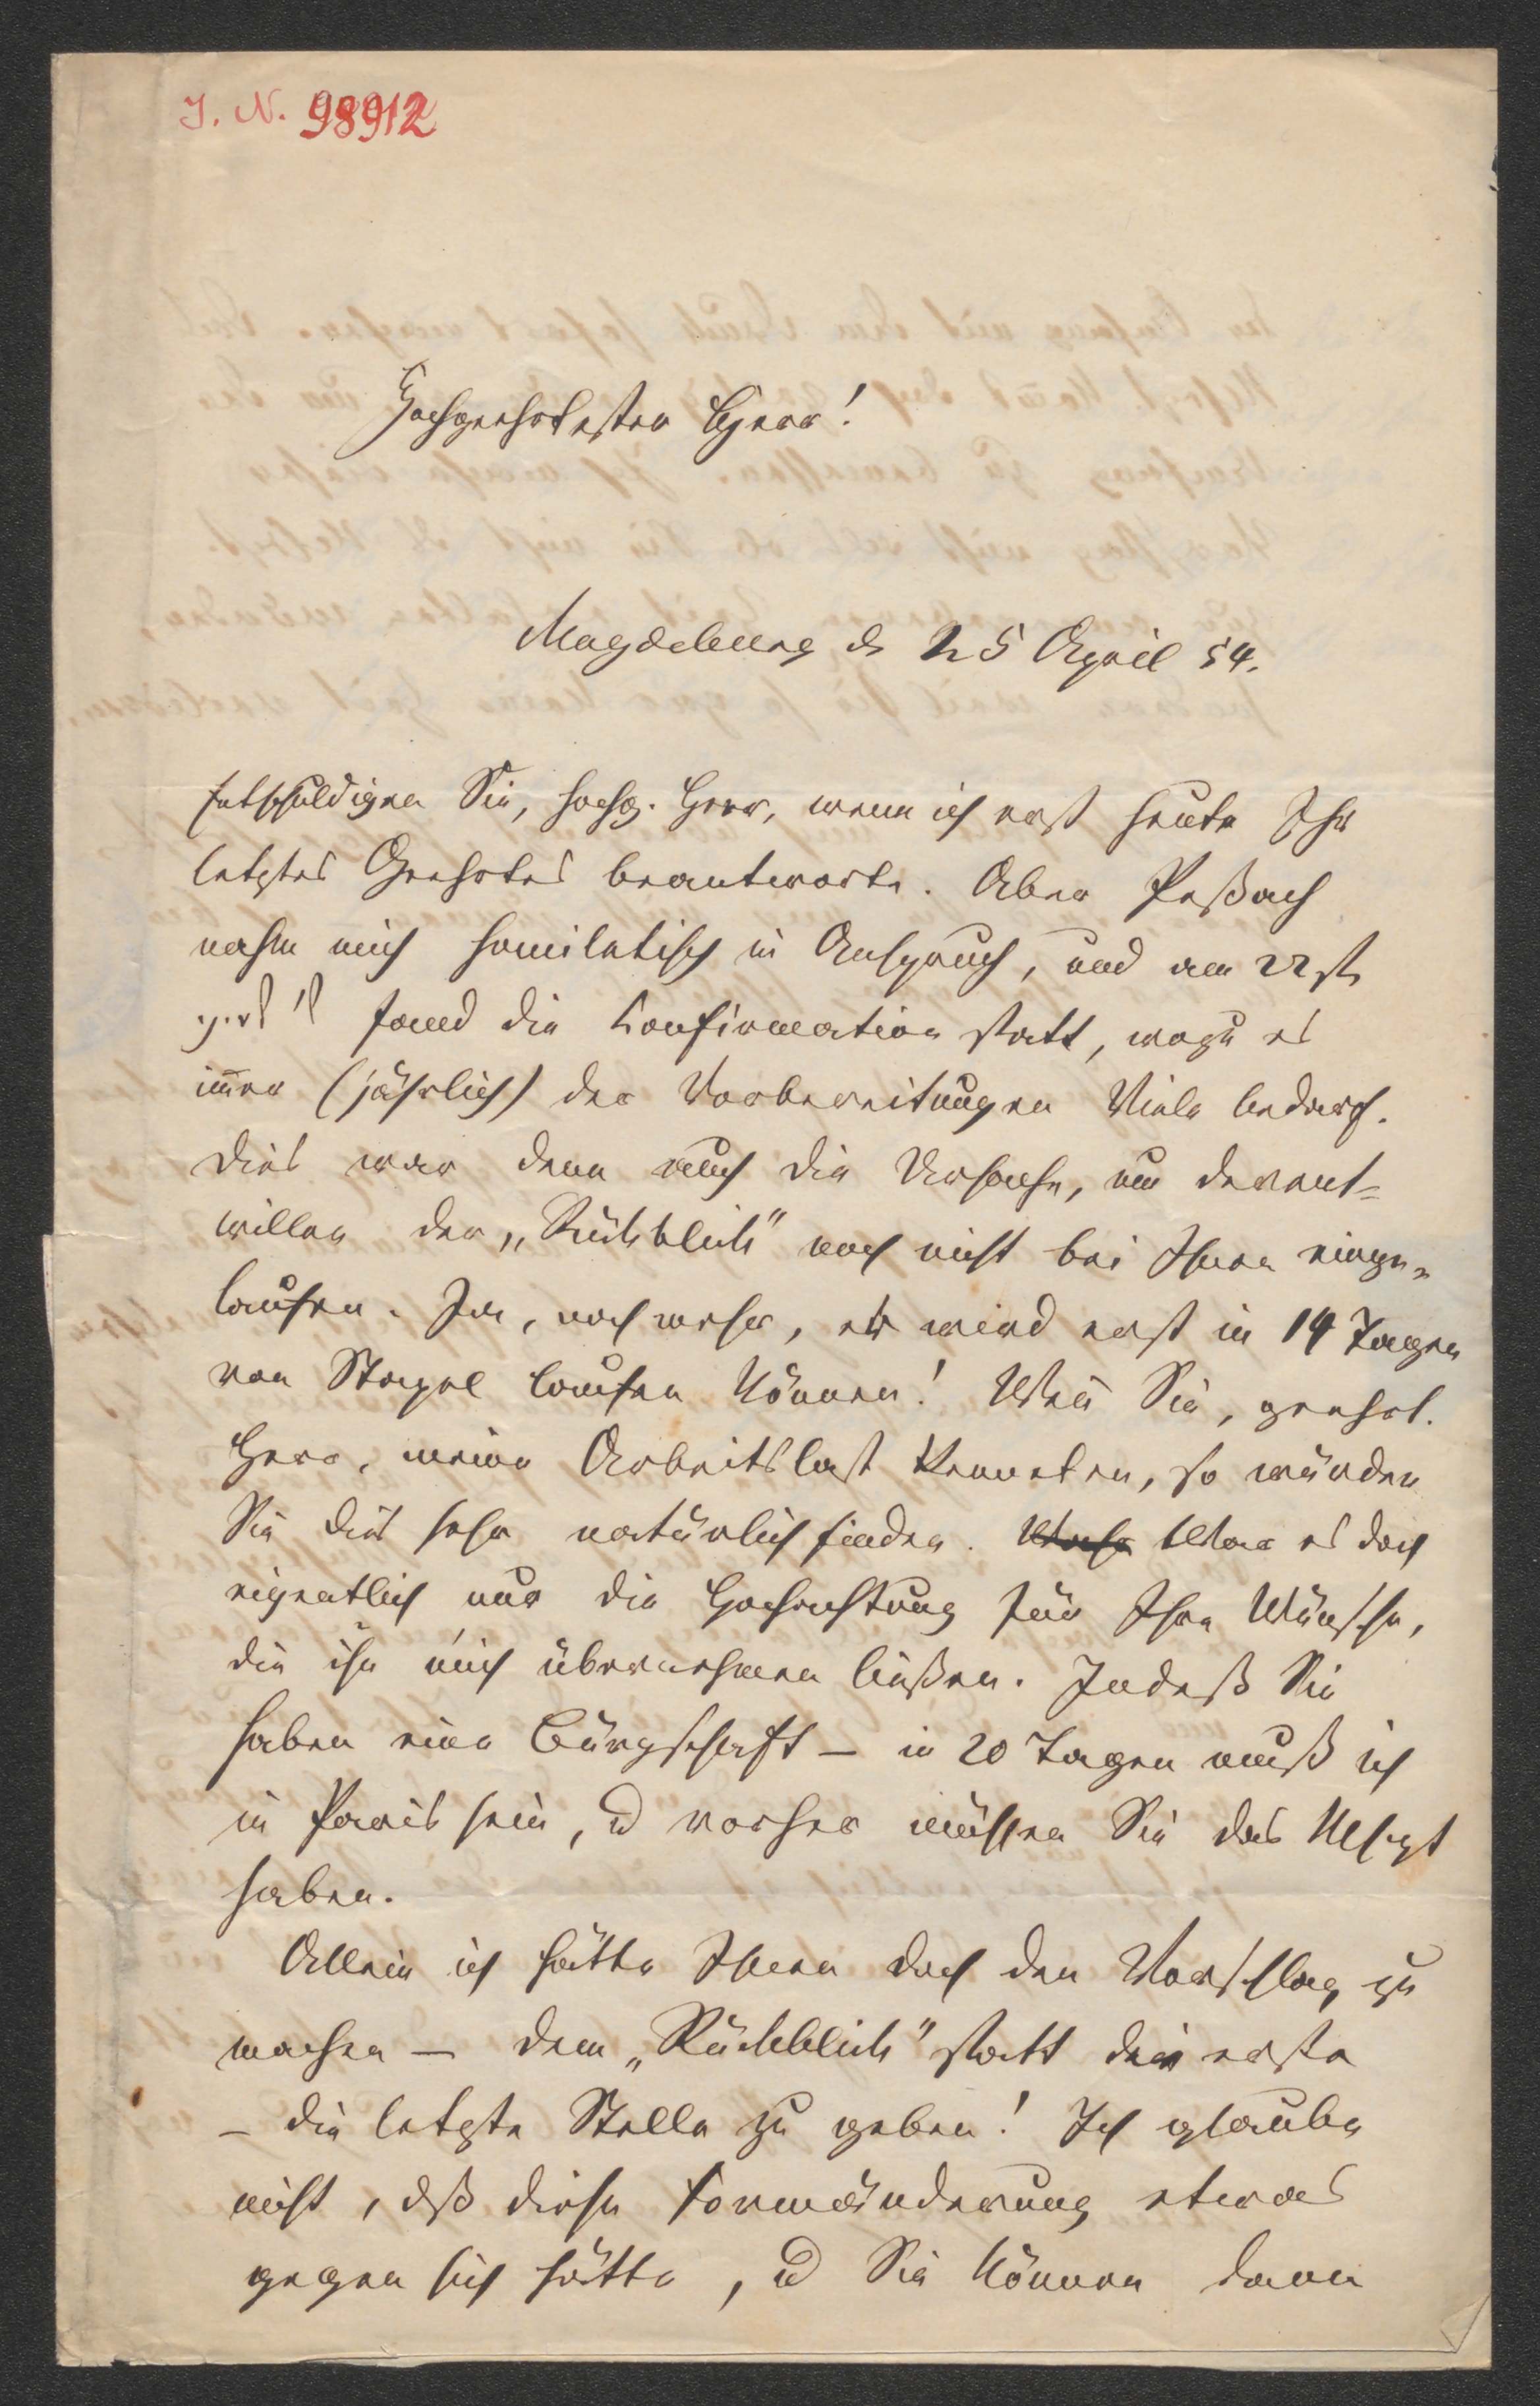 J. N. 98912
Hochgeehrtester Herr!
Magdeburg d. 25 April 54.
Entschuldigen Sie, hochg. Herr, wenn ich erst heute Ihr
letztes Geehrtes beantworte. Aber Peßach
nahm mich homiletisch in Anspruch, und am 22st
fand die Confirmation statt, wozu es
im̄er (jährlich) der Vorbereitungen Viele bedarf.
Dies war denn auch die Ursache, um derent-
willen der „Rückblick" noch nicht bei Ihnen einge-
laufen. Ja, noch mehr, er wird erst in 14 Tagen
von Stapel laufen können! Wen̄ Sie, geehrt.
Herr, meine Arbeitslast kenneten, so würden
Sie dies sehr natürlich finden. War es doch
eigentlich nur die Hochachtung für Ihre Wünsche,
die ihn mich übernehmen ließen. Indeß Sie
haben eine Bürgschaft – in 20 Tagen muß ich
in Paris sein, u vorher müssen Sie das Mscpt
haben.
Allein ich hätte Ihnen doch den Vorschlag zu
machen – dem „Rückblick" statt die erste
– die letzte Stelle zu geben! Ich glaube
nicht, dß diese Formänderung etwas
gegen sich hätte, u Sie können dann